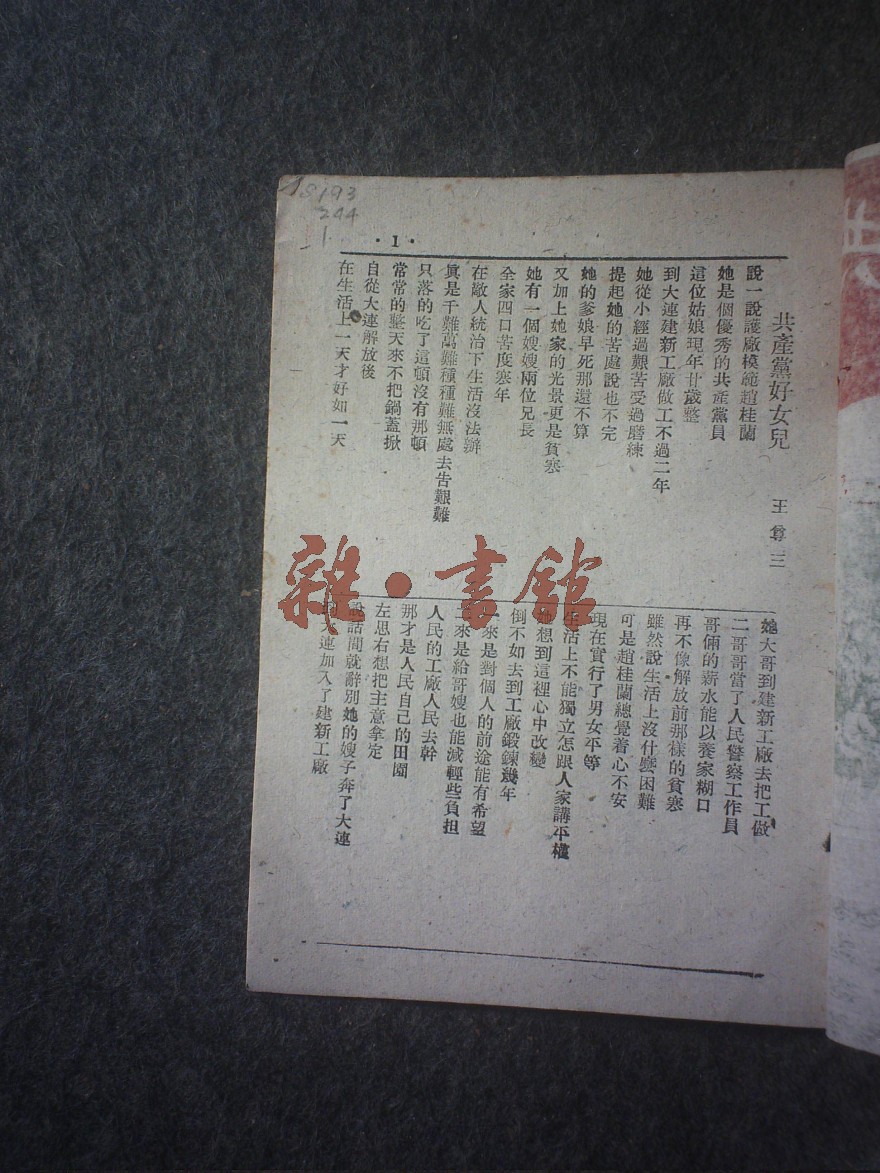 S193
244
1
·1·
共產黨好女兒
王尊三
說一說護廠模範趙桂蘭
她是個優秀的共產黨員
這位姑娘現年廿歲整
到大連建新工廠做工不過二年
她從小經過艱苦受過磨練
提起她的苦處說也不完
她的爹娘早死那還不算
又加上她家的光景更是貧寒
她有一個嫂嫂兩位兄長
全家四口苦度寒年
在敵人統治下生活沒法辦
眞是千難萬難種種難無處去告艱難
只落的吃了這頓沒有那頓
常常的整天來不把鍋蓋掀
自從大連解放後
在生活上一天才好如一天
她大哥到建新工廠去把工做
二哥哥當了人民警察工作員
哥倆的薪水能以養家糊口
再不像解放前那樣的貧寒
雖然說生活上沒什麼困難
可是趙桂蘭總覺着心不安
現在實行了男女平等
生活上不能獨立怎跟人家講平權
她想到這裡心中改變
倒不如去到工廠鍛鍊幾年
一來是對個人的前途能有希望
二來是給哥嫂也能減輕些負担
人民的工廠人民去幹
那才是人民自己的田園
左思右想把主意拿定
說話間就辭別她的嫂子奔了大連
大連加入了建新工廠
雜·書館